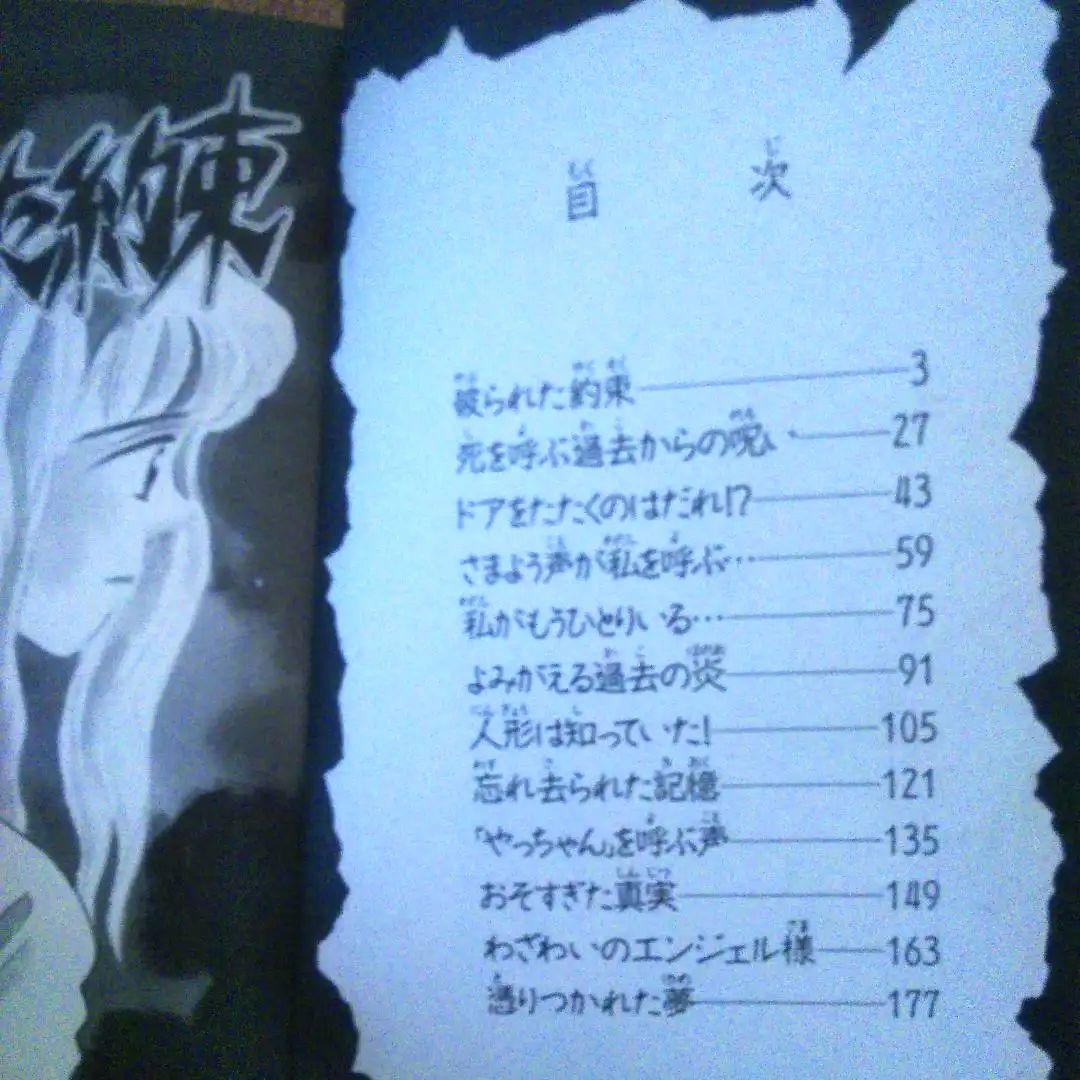 た約束
目次
破られた約束 3
死を呼ぶ過去からの呪い 27
ドアをたたくのはだれ!? 43
さまよう声が私を呼ぶ… 59
私がもうひとりいる… 75
よみがえる過去の炎 91
人形は知っていた! 105
忘れ去られた記憶 121
「やっちゃん」を呼ぶ声 135
おそすぎた真実 149
わざわいのエンジェル様 163
憑りつかれた夢 177